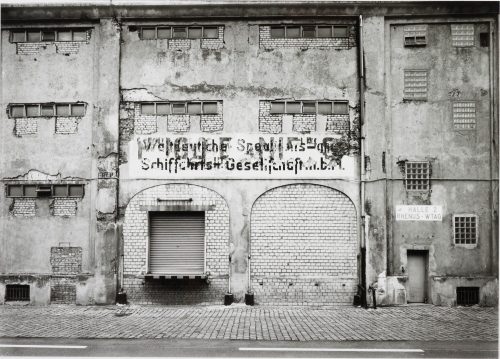 Westdeutsche Speditions- und
Schiffahrts-Gesellschaft m.b.H.
HALLE 2
RHENUS-WTAG